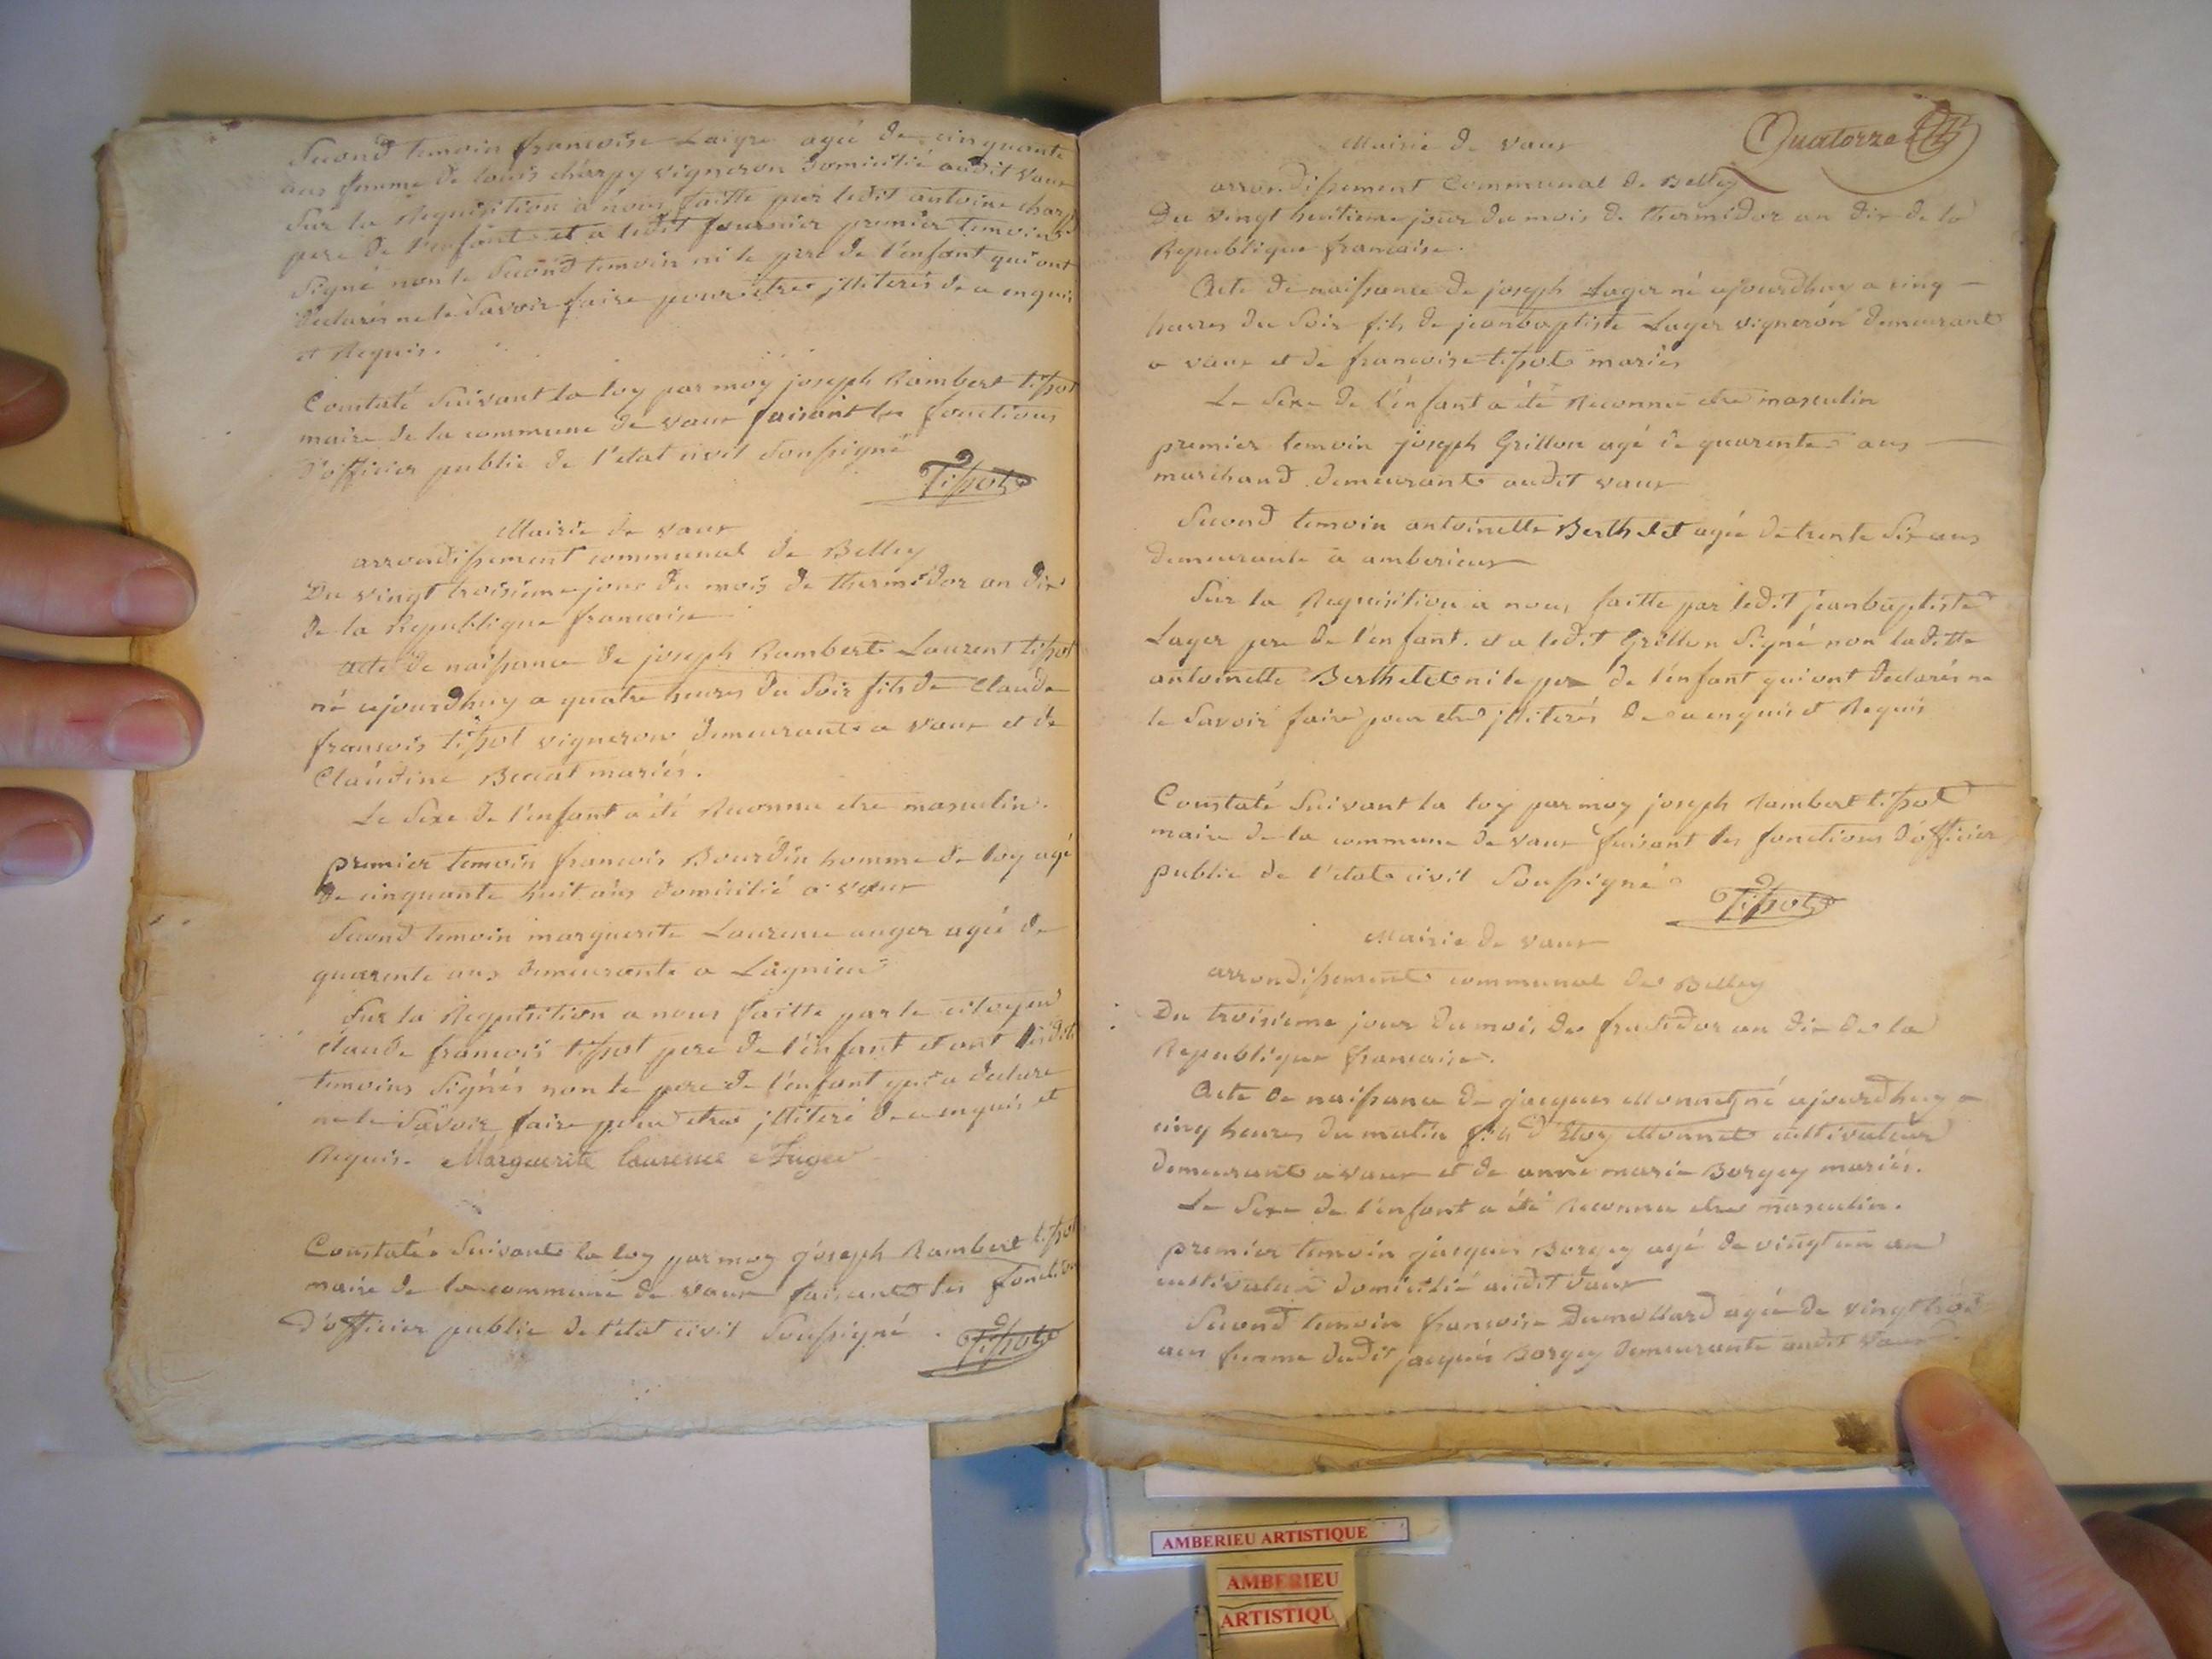 Second temoin francoise Laigre agée de cinquante
ans femme de louis charpy vigneron domicilié audit vaux
Sur la Requisition a nous faitte par ledit antoine charpy
pere de l'enfant et a ledit fournier premier temoin
Signé non le Second temoin ni le pere de l'enfant qui ont
declarés ne le Savoir faire pour etre jlliterés de ce enquis
et Requis.
Constaté Suivant la loy par moy joseph Rambert tissot
maire de la commune de vaux faisant les fonctions
d'officier public de l'etat civil Soussigné
Tissot
Mairie de vaux
arrondissement communal de Belley
Du vingt troisieme jour du mois de thermidor an dix
de la Republique francaise
Acte de naissance de joseph Rambert Laurent tissot
né ajourdhuy a quatre heures du Soir fils de Claude
francois tissot vigneron demeurant a vaux et de
Claudine mariés.
Le Sexe de l'enfant a été Reconnu etre masculin.
premier temoin francois Bourdin homme de loy agé
de cinquante huit ans domicilié a vaux
Second temoin marguerite Laurence auger agée de
quarente ans demeurante a Lagnieu
Sur la Requisition a nous faitte par le citoyen
claude francois tissot pere de l'enfant et ont lesdits
temoins Signés non le pere de l'enfant qui a declaré
ne le Savoir faire pour etre jlliteré de ce enquis et
Requis. Marguerite laurence Auger
Constaté Suivant la loy par moy joseph Rambert tissot
maire de la commune de vaux faisant les fonctions
D'officier public de l'etat civil Soussigné.
Tissot
Quatorze
Mairie de vaux
arrondissement Communal de Belley
Du vingt huitieme jour du mois de thermidor an dix de la
Republique francaise.
Acte de naissance de joseph Lager né ajourdhuy a cinq
heures du Soir fils de jeanbaptiste Lager vigneron demeurant
a vaux et de françoise tissot mariés
Le Sexe de l'enfant a été Reconnu etre masculin
premier temoin joseph Grillon agé de quarente ans
marchand demeurant audit vaux
Second temoin antoinette Berthelet agée de trente Six ans
demeurante a amberieux
Sur la Requisition a nous faitte par ledit jeanbaptiste
Lager pere de l'enfant. et a ledit Grillon Signé non laditte
antoinette Berthelet ni le pere de l'enfant qui ont declarés ne
le Savoir faire pour etre jlliterés de ce enquis et Requis
Constaté Suivant la loy par moy joseph Rambert tissot
maire de la commune de vaux faisant les fonctions d'officier
public de l'etat civil Soussigné
Tissot
Mairie de vaux
arrondissement communal de Belley
Du troisieme jour du mois de frutidor an dix de la
Republique francaise.
Acte de naissance de jacques Monnet né ajourdhuy a
cinq heures du matin fils d'Eloy Monnet cultivateur
demeurant a vaux et de anne marie Borgey mariés.
Le Sexe de l'enfant a été Reconnu etre masculin.
premier temoin jacques Borgey agé de vingt un an
cultivateur domicilié audit vaux
Second temoin francoise Dumollard agée de vingt trois
ans femme dudit jacques Borgey demeurante audit vaux
AMBERIEU ARTISTIQUE
AMBERIEU
ARTISTIQU